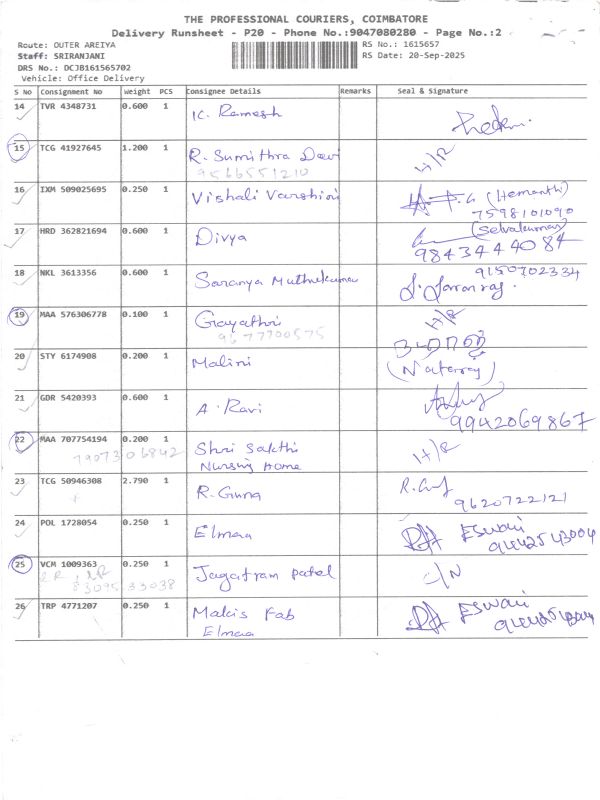 THE PROFESSIONAL COURIERS, COIMBATORE
Delivery Runsheet - P20 - Phone No.:9047080280 - Page No.:2
Route: OUTER AREIYA RS No.: 1615657
Staff: SRIRANJANI RS Date: 20-Sep-2025
DRS No.: DCJB161565702
Vehicle: Office Delivery
S No Consignment No Weight PCS Consignee Details Remarks Seal & Signature
14 TVR 4348731 0.600 1 K. Ramesh
15 TCG 41927645 1.200 1 R. Sumithra Devi H/R
9566551210
16 IXM 509025695 0.250 1 Vishali Varshini (Hemanth)
7598101090
17 HRD 362821694 0.600 1 Divya (Selvakumar)
9843444084
18 NKL 3613356 0.600 1 Saranya Muthukumar 9150702334
19 MAA 576306778 0.100 1 Gayathri H/R
9677700575
20 STY 6174908 0.200 1 Malini
(Nataraj)
21 GDR 5420393 0.600 1 A. Ravi
9942069867
22 MAA 707754194 0.200 1 Shri Sakthi H/R
7907306842 Nursing Home
23 TCG 50946308 2.790 1 R. Guna
9620722121
24 POL 1728054 0.250 1 Elmaa Eswari
9442543004
25 VCM 1009363 0.250 1 Jagatram patel C/N
8309533038
26 TRP 4771207 0.250 1 Makis Fab Eswari
Elmaa